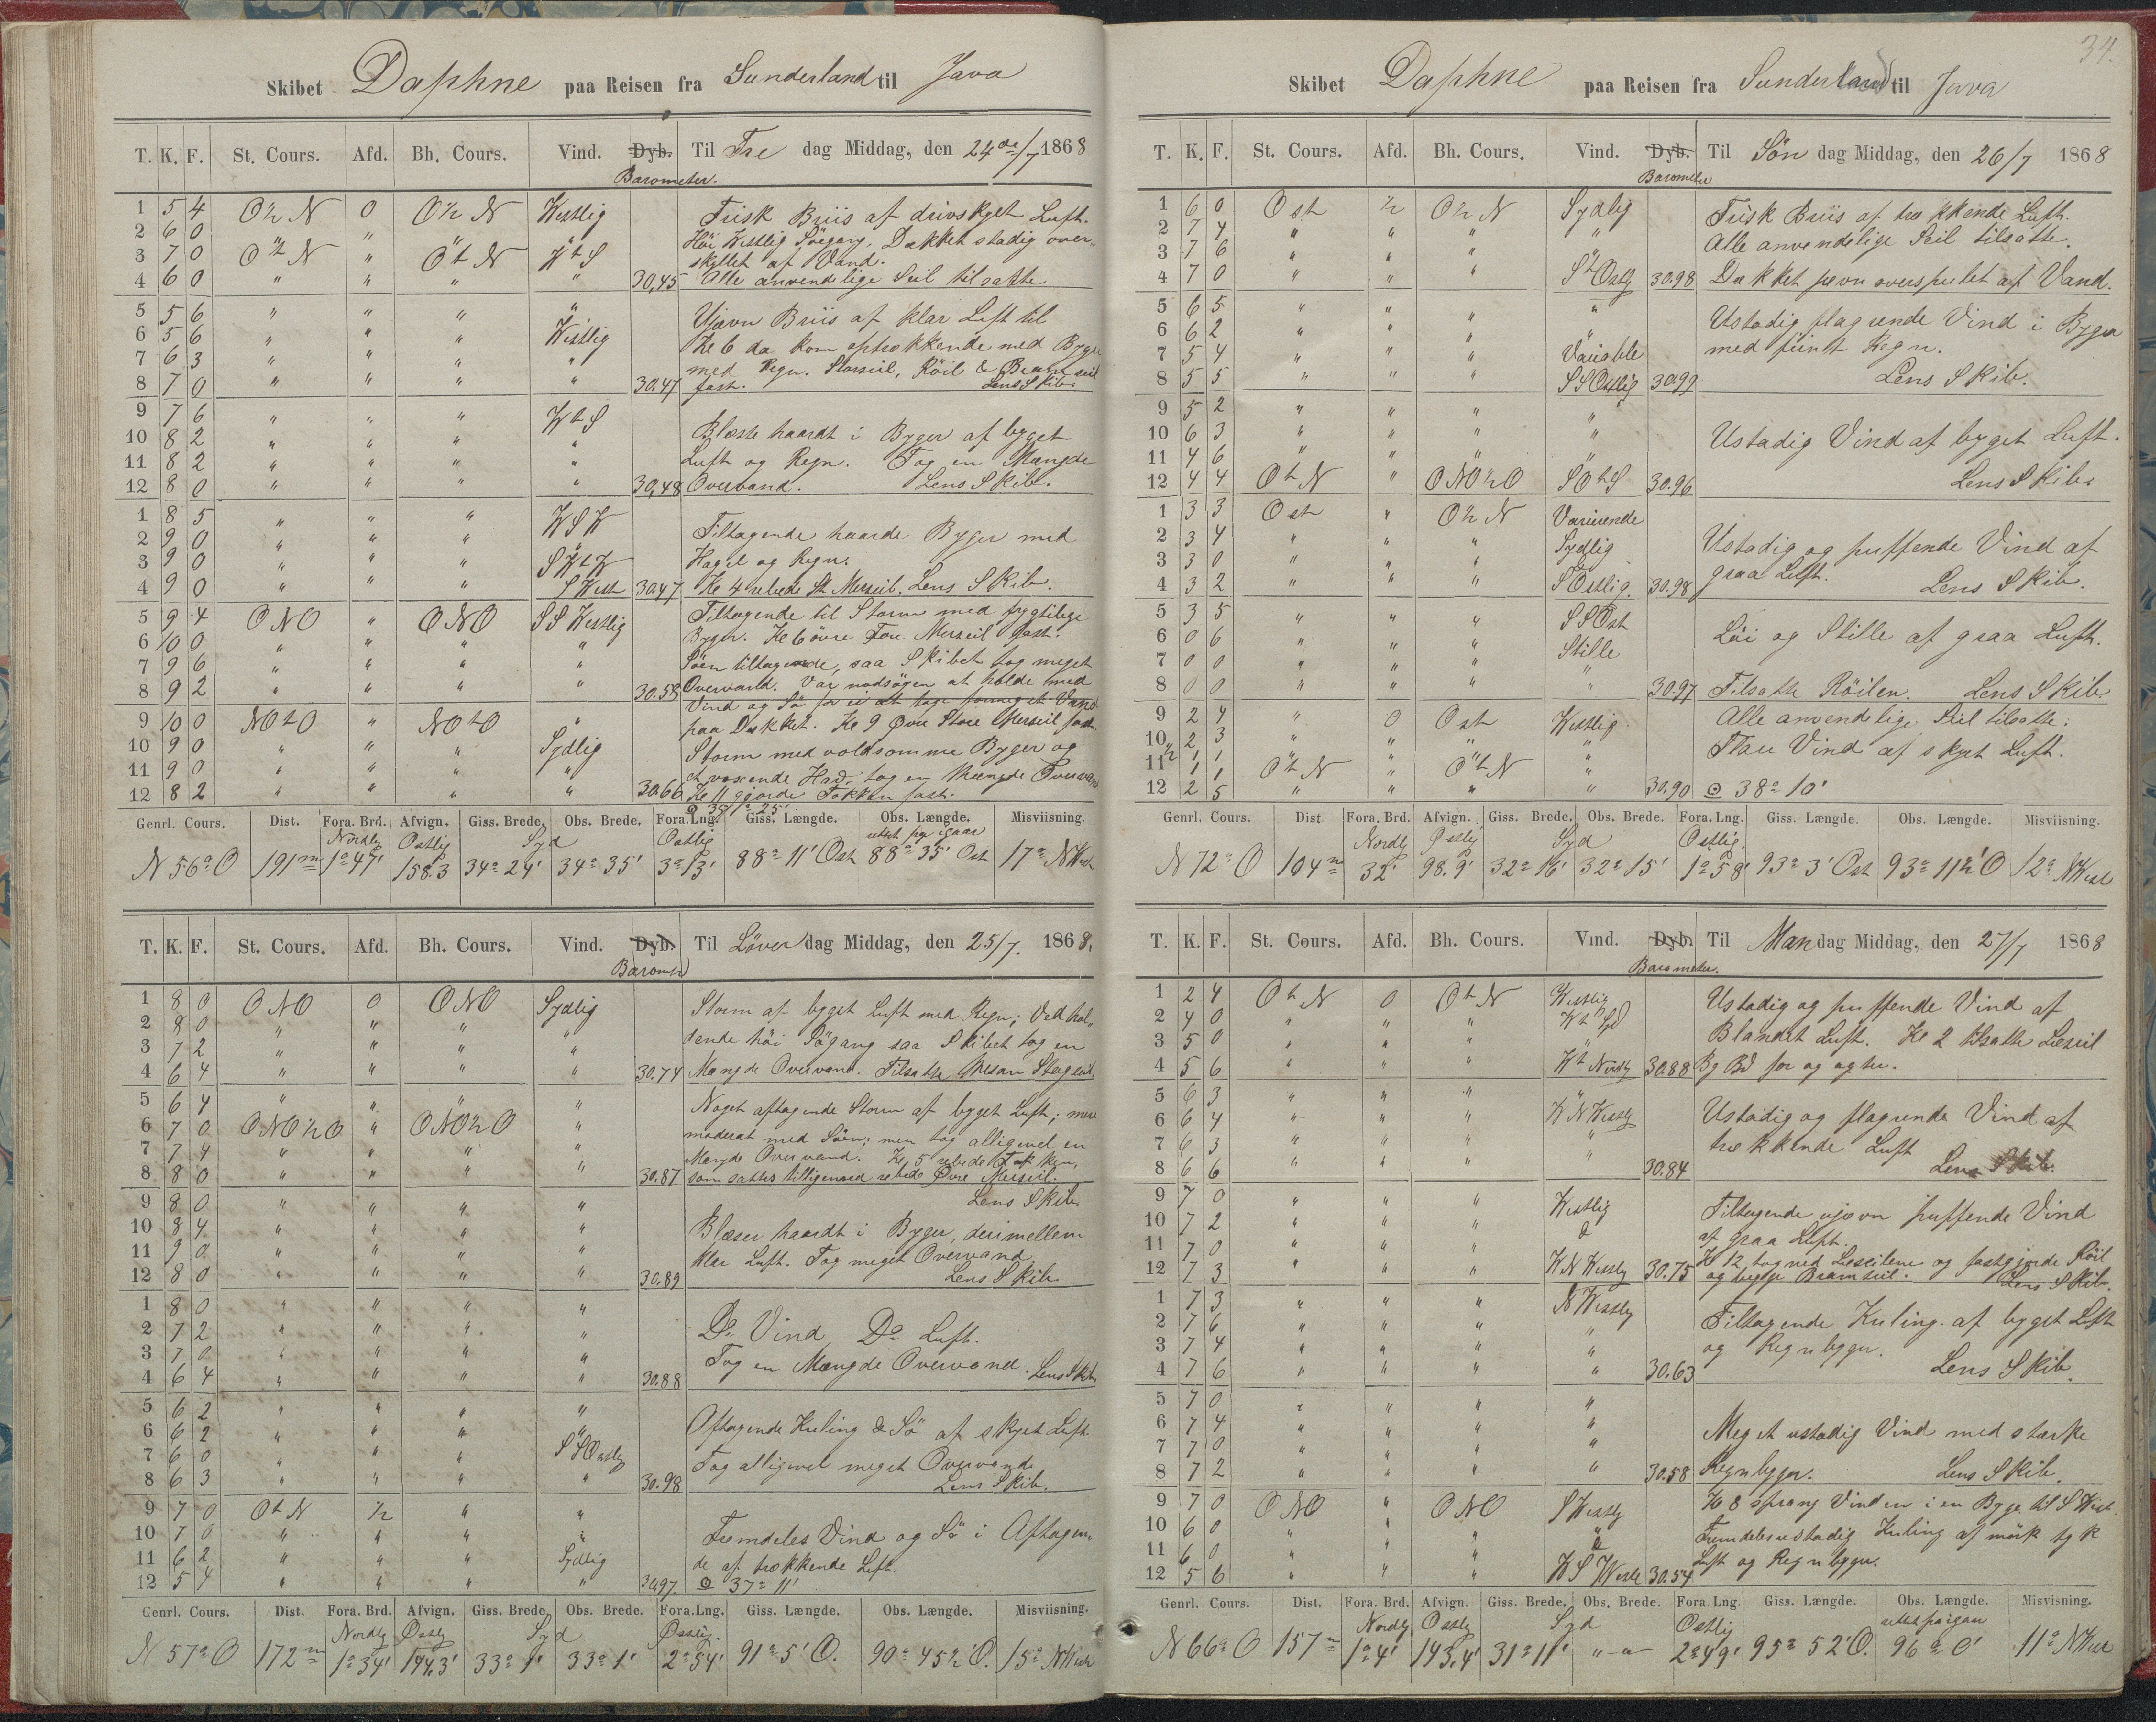 Skibet Daphne paa Reisen fra Sunderland til Java
T. K. F. St. Cours. Afd. Bh. Cours. Vind. Dyb. Til Fre dag Middag, den 24de/7 1868
Barometer.
1 5 4 O½N 0 O½N Westlig Frisk Briis af drivskyet Luft.
2 6 0 " Höi Westlig Söegang, Dækket stadig over-
3 7 0 OtN " OtN WtS skyllet af Vand.
4 6 0 " " " " 30,45 Alle anvendelige Seil tilsatte
5 5 6 " " " " Ujævn Briis af klar Luft til
6 5 6 " " " Westlig Kl 6 da kom optrækkende med Byger
7 6 3 " " " " med Regn. Storseil, Röil & Bramseil
8 7 0 " " " " 30.47 fast. Lens Skib.
9 7 6 " " " WtS
10 8 2 " " " " Blæste haardt i Byger af byget
11 8 2 " " " " Luft og Regn. Tog en Mængde
12 8 0 " " " " 30,48 Overvand. Lens Skib.
1 8 5 " " " WSW
2 9 0 " " " " Tiltagende haarde Byger med
3 9 0 " " " SWtW Hagel og Regn.
4 9 0 " " " SWest 30.47 Kl 4 rebede St. Merseil. Lens Skib.
5 9 4 ONO " ONO SSWestlig Tiltagende til Storm med frygtelige
6 10 0 " " " " Byger. Kl 6 övre For Merseil fast.
7 9 6 " " " " Söen tiltagende, saa Skibet tog meget
8 9 2 " " " " 30.58 Overvand. Var nødsagen at holde med
Vind og Sö for ei at tage formeget Vand
9 10 0 NOtO " NOtO " paa Dækket. Kl 9 Øvre Store Merseil fast.
10 9 0 " " " Sydlig Storm med voldsomme Byger og
11 9 0 " " " " et voxende Hav; tog en Mængde Overvand
12 8 2 " " " " 30.66 Kl 11 gjorde Fokken fast.
Genrl. Cours. Dist. Fora. Brd. Afvign. Giss. Brede. Obs. Brede. Fora. Lng. Giss. Længde. Obs. Længde. Misviisning.
Nordlig Ostlig Syd Ostlig
N 56° O 191m 1° 47' 158.3 34° 24' 34° 35' 3° 13' 88° 11' Ost 88° 35' Ost 17° NWest
T. K. F. St. Cours. Afd. Bh. Cours. Vind. Dyb. Til Löver dag Middag, den 25/7. 1868.
1 8 0 ONO 0 ONO Sydlig Storm af byget Luft med Regn; Vedhol-
2 8 0 " " " " dende höi Sögang saa Skibet tog en
3 7 2 " " " "
4 6 4 " " " " 30.74 Mængde Overvand. Tilsatte Mesan Stagseil
5 6 4 " " " " Noget aftagende Storm af byget Luft; mere
6 7 0 ONO½O " ONO½O " moderat med Söen; men tog alligevel en
7 7 4 " " " " Mængde Overvand. Kl 5 rebede Fokken,
8 8 0 " " " " 30.87 som sattes tilligemed rebede Øvre Merseil.
9 8 0 " " " " Lens Skib
10 8 4 " " " " Blæser haardt i Byger, derimellem
11 9 0 " " " " klar Luft. Tog meget Overvand
12 8 0 " " " " 30.89 Lens Skib.
1 8 0 " " " "
2 7 2 " " " " Do Vind, Do Luft.
3 7 0 " " " "
4 6 4 " " " " 30.88 Tog en Mængde Overvand. Lens Skib
5 6 2 " " " "
6 6 2 " " " " Aftagende Kuling & Sö af skyet Luft
7 6 0 " " " SSOostlig Tog alligevel meget Overvand
8 6 3 " " " " 30.98 Lens Skib.
9 7 0 OtN ½ " "
10 7 0 " " " " Fremdeles Vind og Sö i Aftagen-
11 6 2 " " " Sydlig de af trækkende Luft.
12 5 4 " " " " 30.97. ☉ 37° 11'
Genrl. Cours. Dist. Fora. Brd. Afvign. Giss. Brede. Obs. Brede. Fora. Lng. Giss. Længde. Obs. Længde. Misviisning.
Nordlig Østlig Syd Østlig
N 57° O 172m 1° 34' 144.3' 33° 1' 33° 1' 2° 54' 91° 5' O. 90° 45½' O. 15° NWest
34.
Skibet Daphne paa Reisen fra Sunderland til Java
T. K. F. St. Cours. Afd. Bh. Cours. Vind. Dyb. Til Søn dag Middag, den 26/7 1868
Barometer
1 6 0 Ost ½ O½N Sydlig Frisk Briis af trækkende Luft.
2 7 4 " " " " Alle anvendelige Seil tilsatte.
3 7 6 " " "
4 7 0 " " " StOstlg 30.98 Dækket jævn overspulet af Vand.
5 6 5 " " " " Ustadig flagrende Vind i Byger
6 6 2 " " " "
7 5 4 " " " Variable med fiint Regn.
8 5 5 " " " SSOstlig 30.99 Lens Skib.
9 5 2 " " " "
10 6 3 " " " " Ustadig Vind af byget Luft.
11 4 6 " " " "
12 4 4 OtN " ONO½O SOtS 30.96 Lens Skib.
1 3 3 Ost " O½N Varierende
2 3 4 " " " Sydlig Ustadig og puffende Vind af
3 3 0 " " " "
4 3 2 " " " SOstlig. 30.98 graa Luft. Lens Skib.
5 3 5 " " " SSOst
6 0 6 " " " Stille Löi og Stille af graa Luft.
7 0 0 " " " "
8 0 0 " " " " 30.97 Tilsatte Röilen. Lens Skib
9 2 4 " 0 Ost Westlig Alle anvendelige Seil tilsatte.
10 2 3 " " " " Flau Vind af skyet Luft.
11 1 1 OtN " OtN "
12 2 5 " " " " 30.90 ☉ 38° 10'
Genrl. Cours. Dist. Fora. Brd. Afvign. Giss. Brede. Obs. Brede. Fora. Lng. Giss. Længde. Obs. Længde. Misviisning.
Nordlg Østlig Syd Østlig.
N 72° O 104m 32' 98.9' 32° 16' 32° 15' 1° 58' 93° 3' Ost 93° 11½' O 12° NWest
T. K. F. St. Cours. Afd. Bh. Cours. Vind. Dyb. Til Man dag Middag, den 27/7 1868
Barometer.
1 2 4 OtN 0 OtN Westlig Ustadig og puffende Vind af
2 4 0 " " "
3 5 0 " " " " Blandet Luft. Kl 2 tilsatte Læseil
4 5 6 " " " Wt Nordlg 30.88 Bg Bd for og agter.
5 6 3 " " " "
6 6 4 " " " WNWestlg Ustadig og flagrende Vind af
7 6 3 " " " " trækkende Luft
8 6 6 " " " 30.84 Lens Skib.
9 7 0 " " " Westlig Tiltagende ujævn puffende Vind
10 7 2 " " "
11 7 0 " " " af graa Luft.
12 7 3 " " " WNWestlg 30.75 Kl 12 tog ned Læseilene og fastgjorde Röil
og begge Bramseil. Lens Skib.
1 7 3 " " " NWestlg
2 7 6 " " " " Tiltagende Kuling af byget Luft
3 7 4 " " " " og Regnbyger.
4 7 6 " " " " 30.63 Lens Skib.
5 7 0 " " " "
6 7 4 " " " " Meget ustadig Vind med stærke
7 7 0 " " " "
8 7 2 " " " " 30.58 Regnbyger. Lens Skib.
9 7 0 ONO " ONO SWestlg Kl 8 sprang Vinden i en Byge til SWest.
10 6 0 " " " " Fremdeles ustadig Kuling af mörk tyk
11 6 0 " " " " Luft og Regnbyger.
12 5 6 " " " WSWestl 30.54
Genrl. Cours. Dist. Fora. Brd. Afvign. Giss. Brede. Obs. Brede. Fora. Lng. Giss. Længde. Obs. Længde. Misvisning.
Nordlg Østlig Syd Østlig
N 66° O 157m 1° 4' 143,4' 31° 11' "-" 2° 49' 95° 52' O. 96° 0' 11° NWest